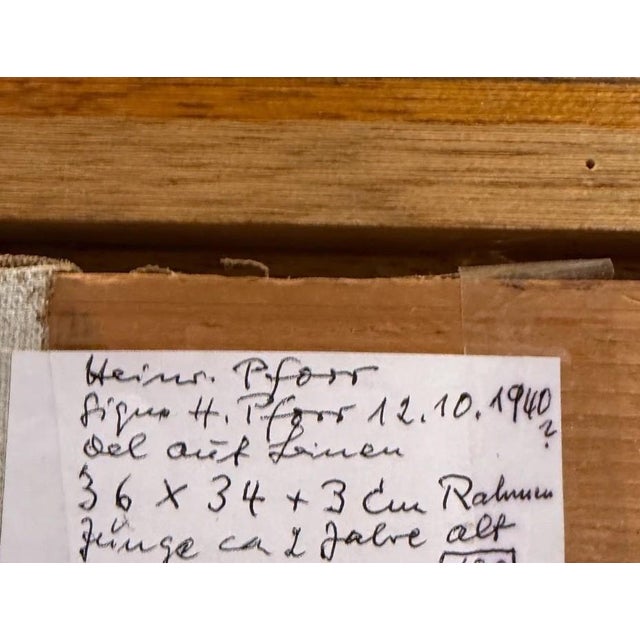 Heinr. Pforr
Sign. H. Pforr 12.10.1940
?
Oel auf Leinen
36 X 34 + 3 cm Rahmen
Junge ca 2 Jahre alt